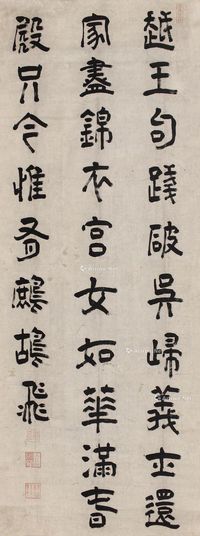 越王句踐破吳歸義士還
家盡錦衣宮女如華滿春
殿只今惟有鷓鴣飛